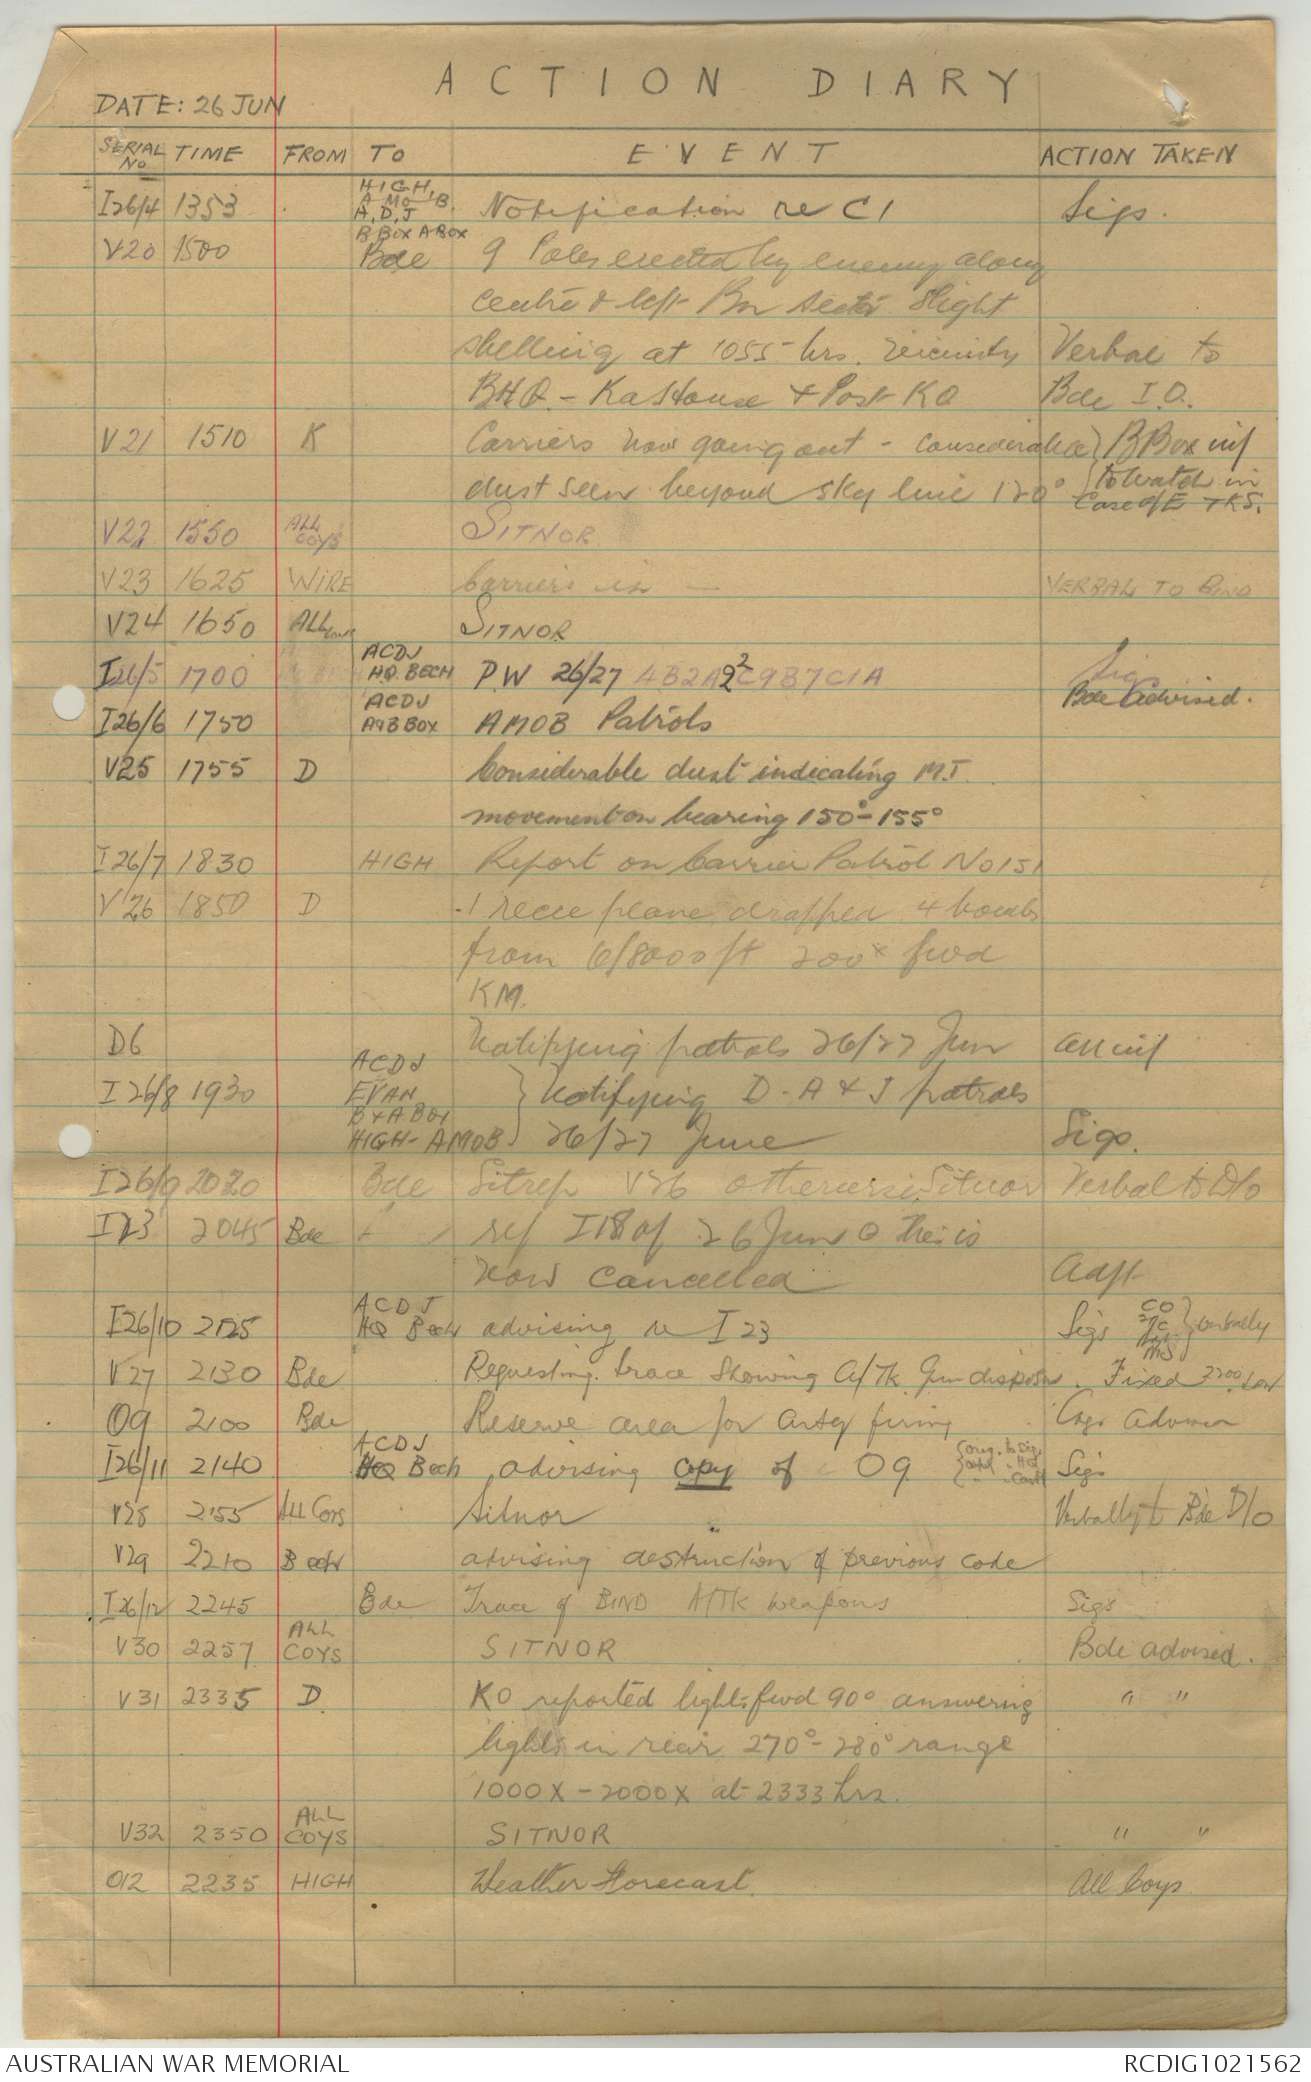 ACTION DIARY
DATE: 26 JUN
SERIAL No TIME FROM TO EVENT ACTION TAKEN
I26/4 1353 HIGH, A MO, B, A, D, J B BOX A BOX Notification re C1 Sigs.
V20 1500 Bde 9 Poles erected by enemy along
centre & left Bn sector Slight
shelling at 1055 hrs. vicinity Verbal to
BHQ - Ka House & Post KO Bde I.O.
V21 1510 K Carriers now going out - considerable } B Box inf
dust seen beyond sky line 120° to watch in
case of E TKS.
V22 1550 ALL COYS SITNOR
V23 1625 WIRE Carriers in — VERBAL TO BIND
V24 1650 ALL SITNOR
I26/5 1700 ACDJ HQ. BECH P.W 26/27 4B2A2C9B7C1A Sigs
Bde advised.
I26/6 1750 ACDJ A&B BOX AMOB Patrols
V25 1755 D Considerable dust indicating M.T.
movement on bearing 150°-155°
I26/7 1830 HIGH Report on Carrier Patrol No 151
V26 1850 D 1 recce plane dropped 4 bombs
from 6/8000 ft 200x fwd
KM.
D6 Notifying patrols 26/27 Jun All inf
I26/8 1930 ACDJ EVAN B & A BOX } Notifying D-A & J patrols
HIGH- AMOB 26/27 June Sigs.
I26/9 2020 Bde Sitrep V26 otherwise Sitnor Verbal to D/o
I23 2045 Bde ref I18 of 26 Jun @ this is
now cancelled Adjt
I26/10 2125 ACDJ HQ Bech advising re I23 Sigs CO 2/IC MS } verbally
V27 2130 Bde Requesting trace showing A/Tk Gun dispositn. Fixed 2200
O9 2100 Bde Reserve area for Arty firing
I26/11 2140 ACDJ HQ Bech advising copy of O9 Sigs
V28 2155 All Coys Sitnor Verbally to Bde D/O
V29 2210 Bech advising destruction of previous code
I26/12 2245 Bde Trace of BIND A/TK weapons Sigs
V30 2257 ALL COYS SITNOR Bde advised.
V31 2335 D KO reported lights fwd 90° answering " "
lights in rear 270°-280° range
1000X - 2000X at 2333 hrs.
V32 2350 ALL COYS SITNOR " "
O12 2235 HIGH Weather Forecast. All Coys
AUSTRALIAN WAR MEMORIAL RCDIG1021562